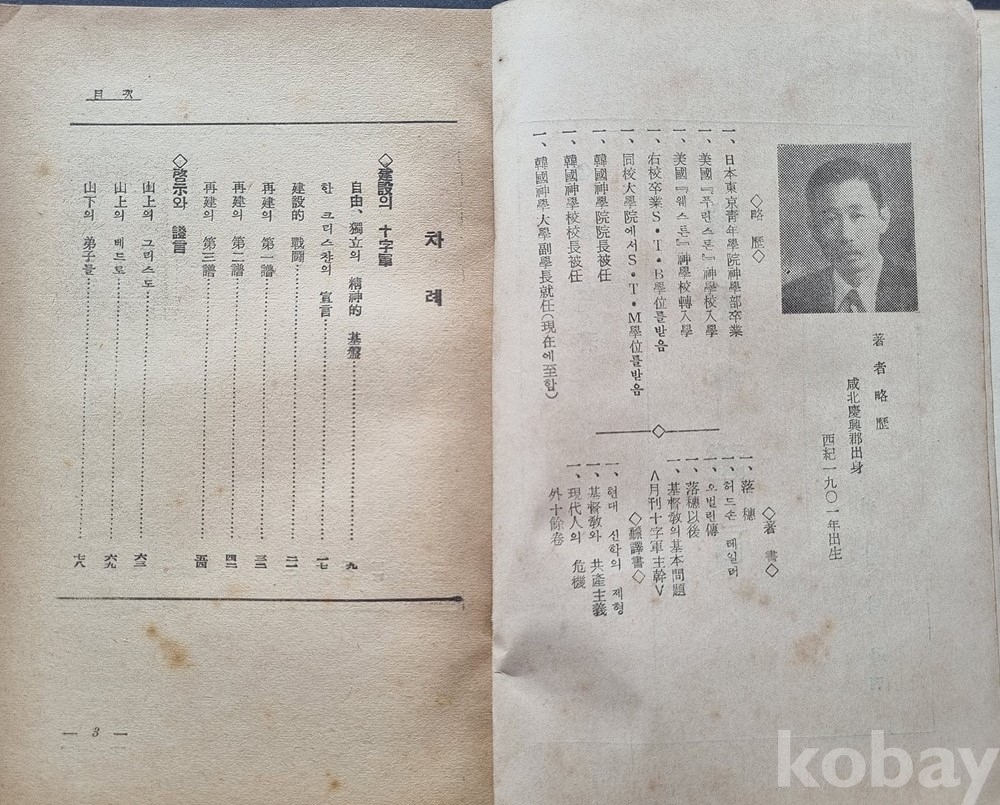 著者略歷
咸北慶興郡出身
西紀一九〇一年出生
◇略歷◇
一、日本東京靑年學院神學部卒業
一、美國『푸린스톤』神學校入學
一、美國『웨스톤』神學校轉入學
一、右校卒業S·T·B學位를받음
一、同校大學院에서S·T·M學位를받음
一、韓國神學院院長被任
一、韓國神學校校長被任
一、韓國神學大學副學長就任(現在에至함)
◇著書◇
一、落穗
一、허드손 테일러
一、오벌린傳
一、落穗以後
一、基督敎의基本問題
∧月刊十字軍主幹∨
◇飜譯書◇
一、현대 신학의 제형
一、基督敎와 共產主義
一、現代人의 危機
外十餘卷
目次
차례
◇建設의 十字軍
自由、獨立의 精神的 基盤 九
한 크리스찬의 宣言 一七
建設的 戰鬪 二二
再建의 第一譜 三二
再建의 第二譜 四二
再建의 第三譜 五四
◇啓示와 證言
山上의 그리스도 六三
山上의 베드로 六九
山下의 弟子들 七八
— 3 —
kobay